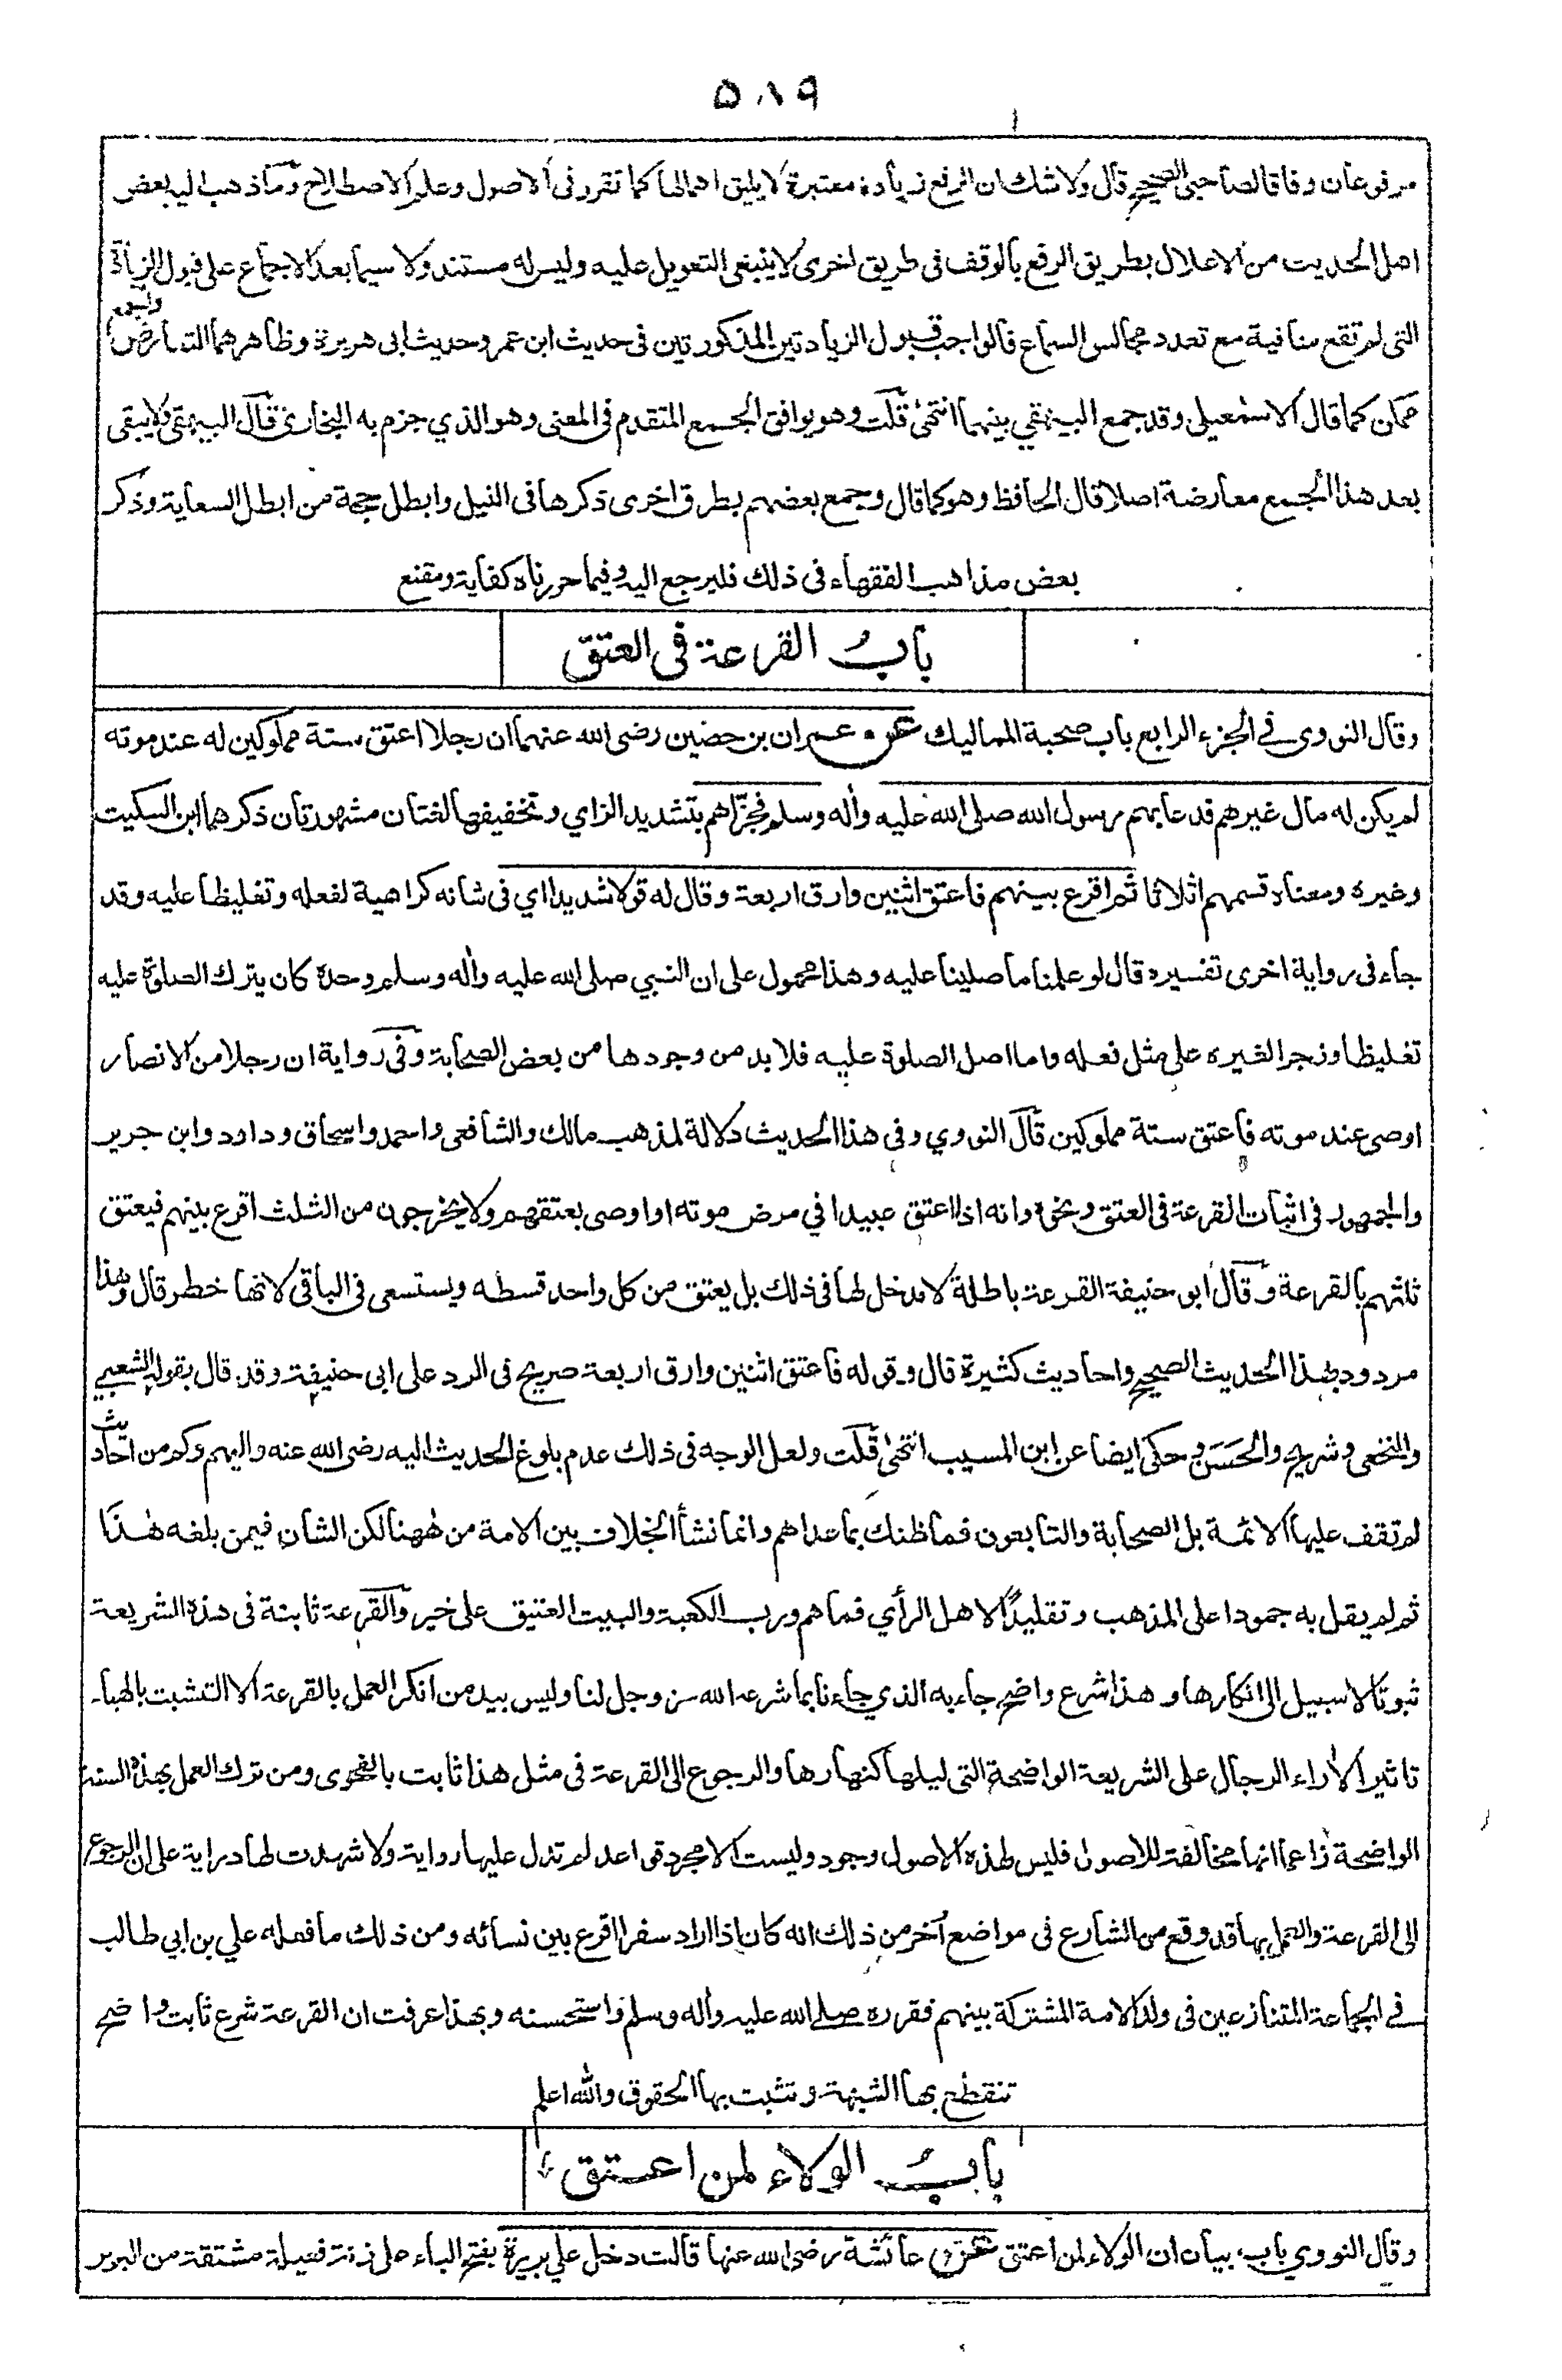 ۵۸۹
مرفوعان وفاقا لصاحبي الصحيح قال ولا شك ان الرفع زيادة معتبرة لا يليق اهمالها كما تقرر فى الاصول وعلم الاصطلاح وما ذهب اليه بعض
اهل الحديث من الاعلال بطريق الرفع بالوقف فى طريق اخرى لا ينبغى التعويل عليه وليس له مستند ولا سيما بعد الاجماع على قبول الزيادة
التى لم تقع منافية مع تعدد مجالس السماع فالواجب قبول الزيادتين المذكورتين فى حديث ابن عمر وحديث ابى هريرة وظاهرهما التعارض والجمع
ممكن كما قال الاسمعيلى وقد جمع البيهقي بينهما انتهىٰ قلت وهو يوافق الجمع المتقدم فى المعنى وهو الذي جزم به البخارى قال البيهقى لا يبقى
بعد هذا الجمع معارضة اصلا قال الحافظ وهو كما قال وجمع بعضهم بطرق اخرى ذكرها فى النيل وابطل حجة من ابطل السعاية وذكر
بعض مذاهب الفقهاء فى ذلك فليرجع اليه وفيما حررناه كفاية ومقنع
بابُ القرعة فى العتق
وقال النووى في الجزء الرابع باب صحبة المماليك عن عمران بن حضين رضى الله عنهما ان رجلا اعتق ستة مملوكين له عند موته
لم يكن له مال غيرهم فدعا بهم رسول الله صلى الله عليه وأله وسلم فجزّاهم بتشديد الزاي وتخفيفها لغتان مشهورتان ذكرهما ابن السكيت
وغيره ومعناه قسمهم اثلاثا ثم اقرع بينهم فاعتق اثنين وارق اربعة وقال له قولا شديدا اي فى شانه كراهية لفعله وتغليظا عليه وقد
جاء فى رواية اخرى تفسيره قال لو علمنا ما صلينا عليه وهذا محمول على ان النبي صلى الله عليه وأله وسلم وحده كان يترك الصلوة عليه
تغليظا وزجرا لغيره على مثل فعله واما اصل الصلوة عليه فلا بد من وجودها من بعض الصحابة وفى رواية ان رجلا من الانصار
اوصى عند موته فاعتق ستة مملوكين قال النووي وفى هذا الحديث دلالة لمذهب مالك والشافعى واحمد واسحاق وداود وابن جرير
والجمهور فى اثبات القرعة فى العتق ونحوه وانه اذا اعتق عبيدا في مرض موته او اوصى بعتقهم ولا يخرجون من الثلث اقرع بينهم فيعتق
ثلثهم بالقرعة وقال ابو حنيفة القرعة باطلة لا مدخل لها فى ذلك بل يعتق من كل واحد قسطه ويستسعى فى الباقى لانها خطر قال وهذا
مردود بهذا الحديث الصحيح واحاديث كثيرة قال وقوله فاعتق اثنين وارق اربعة صريح فى الرد على ابى حنيفة وقد قال بقوله الشعبي
والنخعى وشريح والحَسَن وحكى ايضا عن ابن المسيب انتهىٰ قلت ولعل الوجه فى ذلك عدم بلوغ الحديث اليه رضى الله عنه واليهم وكم من احاديث
لم تقف عليها الائمة بل الصحابة والتابعون فما ظنك بما عداهم وانما نشأ الخلاف بين الامة من ههنا لكن الشان فيمن بلغه هٰذا
ثم لم يقل به جمودا على المذهب وتقليدًا لاهل الرأي فما هم ورب الكعبة والبيت العتيق على خير والقرعة ثابتة فى هذه الشريعة
ثبوتا لا سبيل الى انكارها وهذا شرع واضح جاء به الذي جاءنا بما شرعه الله عز وجل لنا وليس بيد من انكر العمل بالقرعة الا التشبث بالهباء
تاثيرا لاراء الرجال على الشريعة الواضحة التى ليلها كنهارها والرجوع الى القرعة فى مثل هذا ثابت بالفحوى ومن ترك العمل بهذه السنة
الواضحة زاعما انها مخالفة للاصول فليس لهذه الاصول وجود وليست الا مجرد قواعد لم تدل عليها رواية ولا شهدت لها دراية على ان الرجوع
الى القرعة والعمل بها قد وقع من الشارع فى مواضع أخر من ذلك انه كان اذا اراد سفرا اقرع بين نسائه ومن ذلك ما فعله علي بن ابي طالب
في الجماعة المتنازعين فى ولد الامة المشتركة بينهم فقرره صلى الله عليه وأله وسلم واستحسنه وبهذا عرفت ان القرعة شرع ثابت واضح
تنقطع بها الشبهة وتثبت بها الحقوق والله اعلم
بابُ الولاء لمن اعتق
وقال النووي باب بيان ان الولاء لمن اعتق عن عائشة رضى الله عنها قالت دخل علي بريرة بفتح الباء على زنة فعيلة مشتقة من البرير